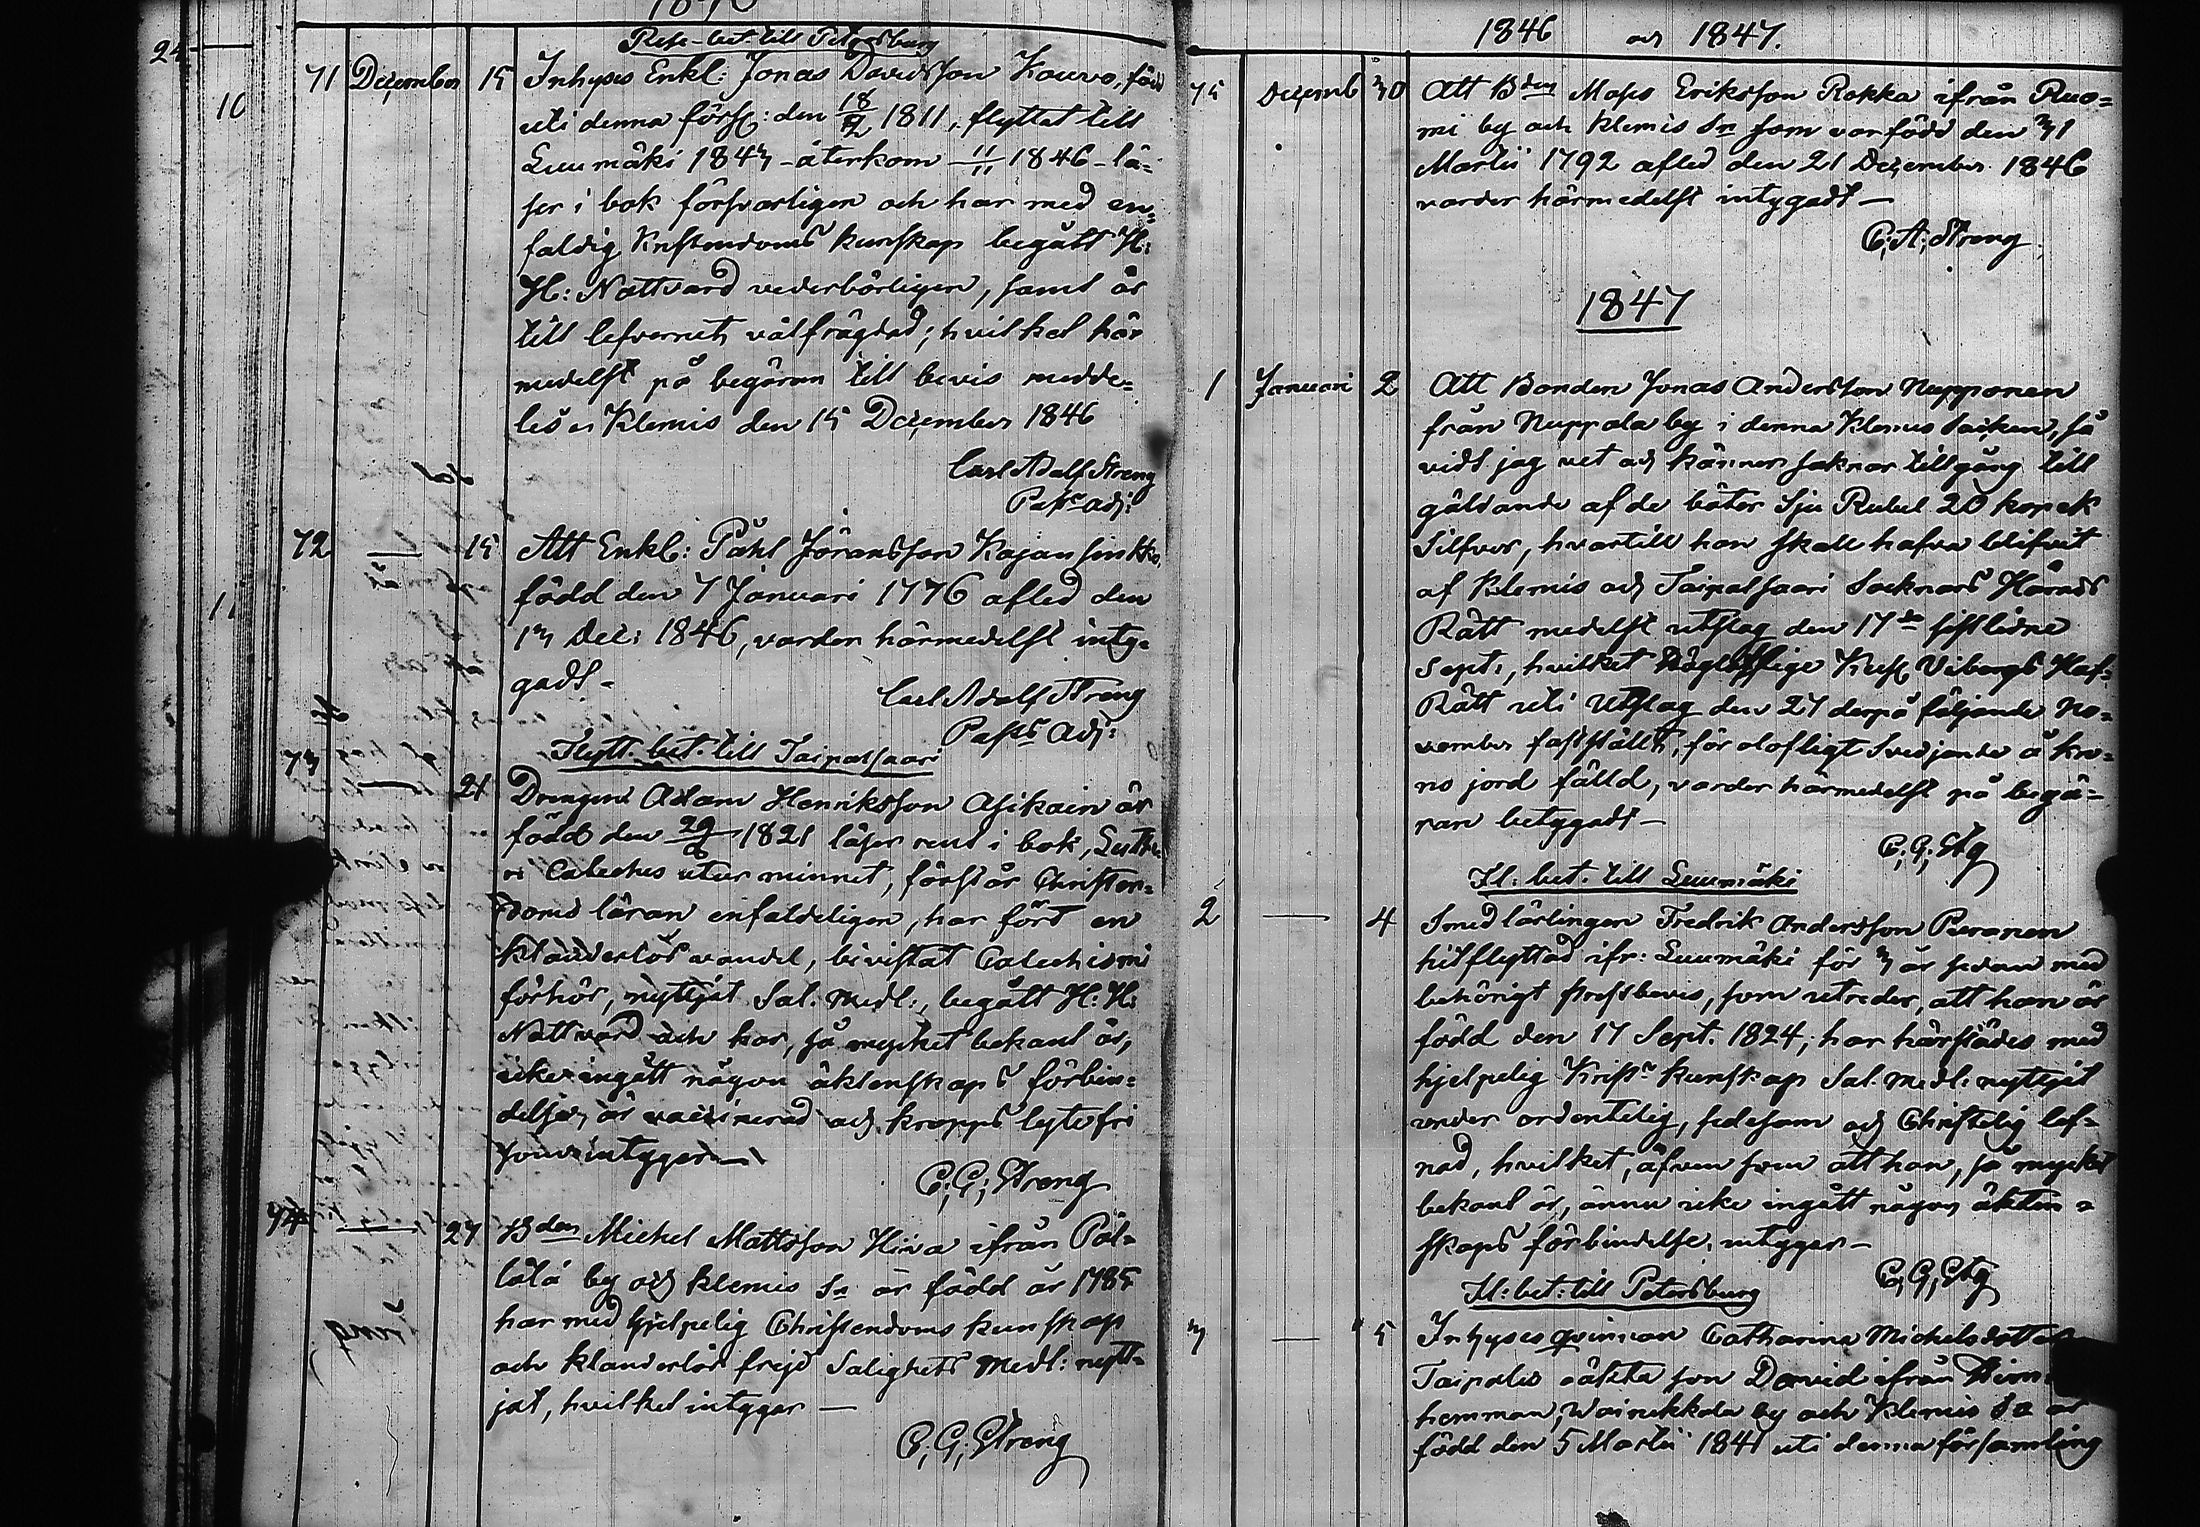 Rese-bet. till Petersburg
71 December 15 Inhyses Enkl: Jonas Davidsson Kouvo, född
uti denna förs: den 18/2 1811, flyttat till
Luumäki 1843 - återkom 11/11 1846 - lä-
ser i bok försvarligen och har med en-
faldig Kristendoms kunskap begått H:
H: Nattvard vederbörligen, samt är
till lefvernet välfrägdad; hvilket här
medelst på begäran till bevis medde-
les Klemis den 15 December 1846
Carl Adolf Streng
Past: adj:
72 — 15 Att Enkl: Påhl Jöransson Kajansinkko,
född den 7 Januari 1776 afled den
13 Dec: 1846, varder härmedelst inty-
gadt -
Carl Adolf Streng
Past: Adj:
Flytt. bet. till Taipalsaari
73 — 21 Drengen Adam Henriksson Asikain är
född den 29/6 1821 läser rent i bok, Luthe-
ri Cateches utur minnet, förstår Christen-
doms läran enfaldeligen, har fört en
klanderlös vandel, bivistat Catechismi
förhör, nyttjat Sal. Medl:, begått H: H:
Nattvard och har, så mycket bekant är,
icke ingått någon äktenskaps förbin-
delse, är vaccinerad och kropps lytefri
som intygar —
C; G; Streng
74 — 27 Bden Michel Mattsson Hiva ifrån Päl-
lälä by och Klemis Sn är född år 1785
har med hjelpelig Christendoms kunskap
och klanderlös frejd Salighets Medl: nytt-
jat, hvilket intygar —
C; G; Streng
1846 och 1847.
75 Decemb 30 Att Bden Moses Eriksson Rokka ifrån Ruo-
mi by och Klemis Sn som var född den 31
Martii 1792 afled den 21 December 1846
varder härmedelst intygadt —
C; A; Streng
1847
1 Januari 2 Att Bonden Jonas Andersson Nupponen
från Nuppola by i denna Klemis Socken, så
vidt jag vet och känner saknar tillgång till
gäldande af de böter Sju Rubel 20 kopek
Silfver, hvartill han skall hafva blifvit
af Klemis och Taipalsaari Socknars Härads
Rätt medelst utslag den 17de sistlidne
Sept:, hvilket Kejs. Viborgs Hof-
Rätt uti Utslag den 27 derpå följande No-
vember fastställt, för olofligt Svedjande å kro-
no jord fälld, varder härmedelst på begä-
ran betygadt —
C; G; Stg
Fl: bet. till Luumäki
2 — 4 Smedlärlingen Fredrik Andersson Peronen
hitflyttad ifr: Luumäki för 3 år sedan med
behörigt prestbevis, som utreder, att han är
född den 17 Sept. 1824; har härstädes med
hjelpelig Krist: kunskap Sal. Medl: nyttjat
under ordentelig, sedesam och Christelig lef-
nad, hvilket, äfven som att han, så mycket
bekant är, ännu icke ingått någon äkten-
skaps förbindelse, intygar —
C; G; Stg
Fl: bet: till Petersburg
3 — 5 Inhyses qvinnan Catharina Michelsdotter
Taipales oäkta son David ifrån
hemman, Wainikkala by och Klemis Sn är
född den 5 Martii 1841 uti denna församling